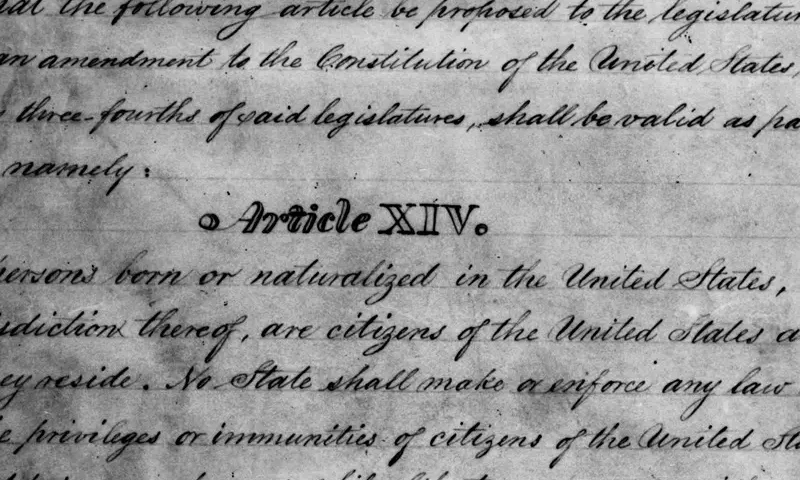 the following article be proposed to the legislatur
an amendment to the Constitution of the United States,
three-fourths of said legislatures, shall be valid as pa
namely:
Article XIV.
ersons born or naturalized in the United States,
sdiction thereof, are citizens of the United States a
ey reside. No State shall make or enforce any law
e privileges or immunities of citizens of the United Sta